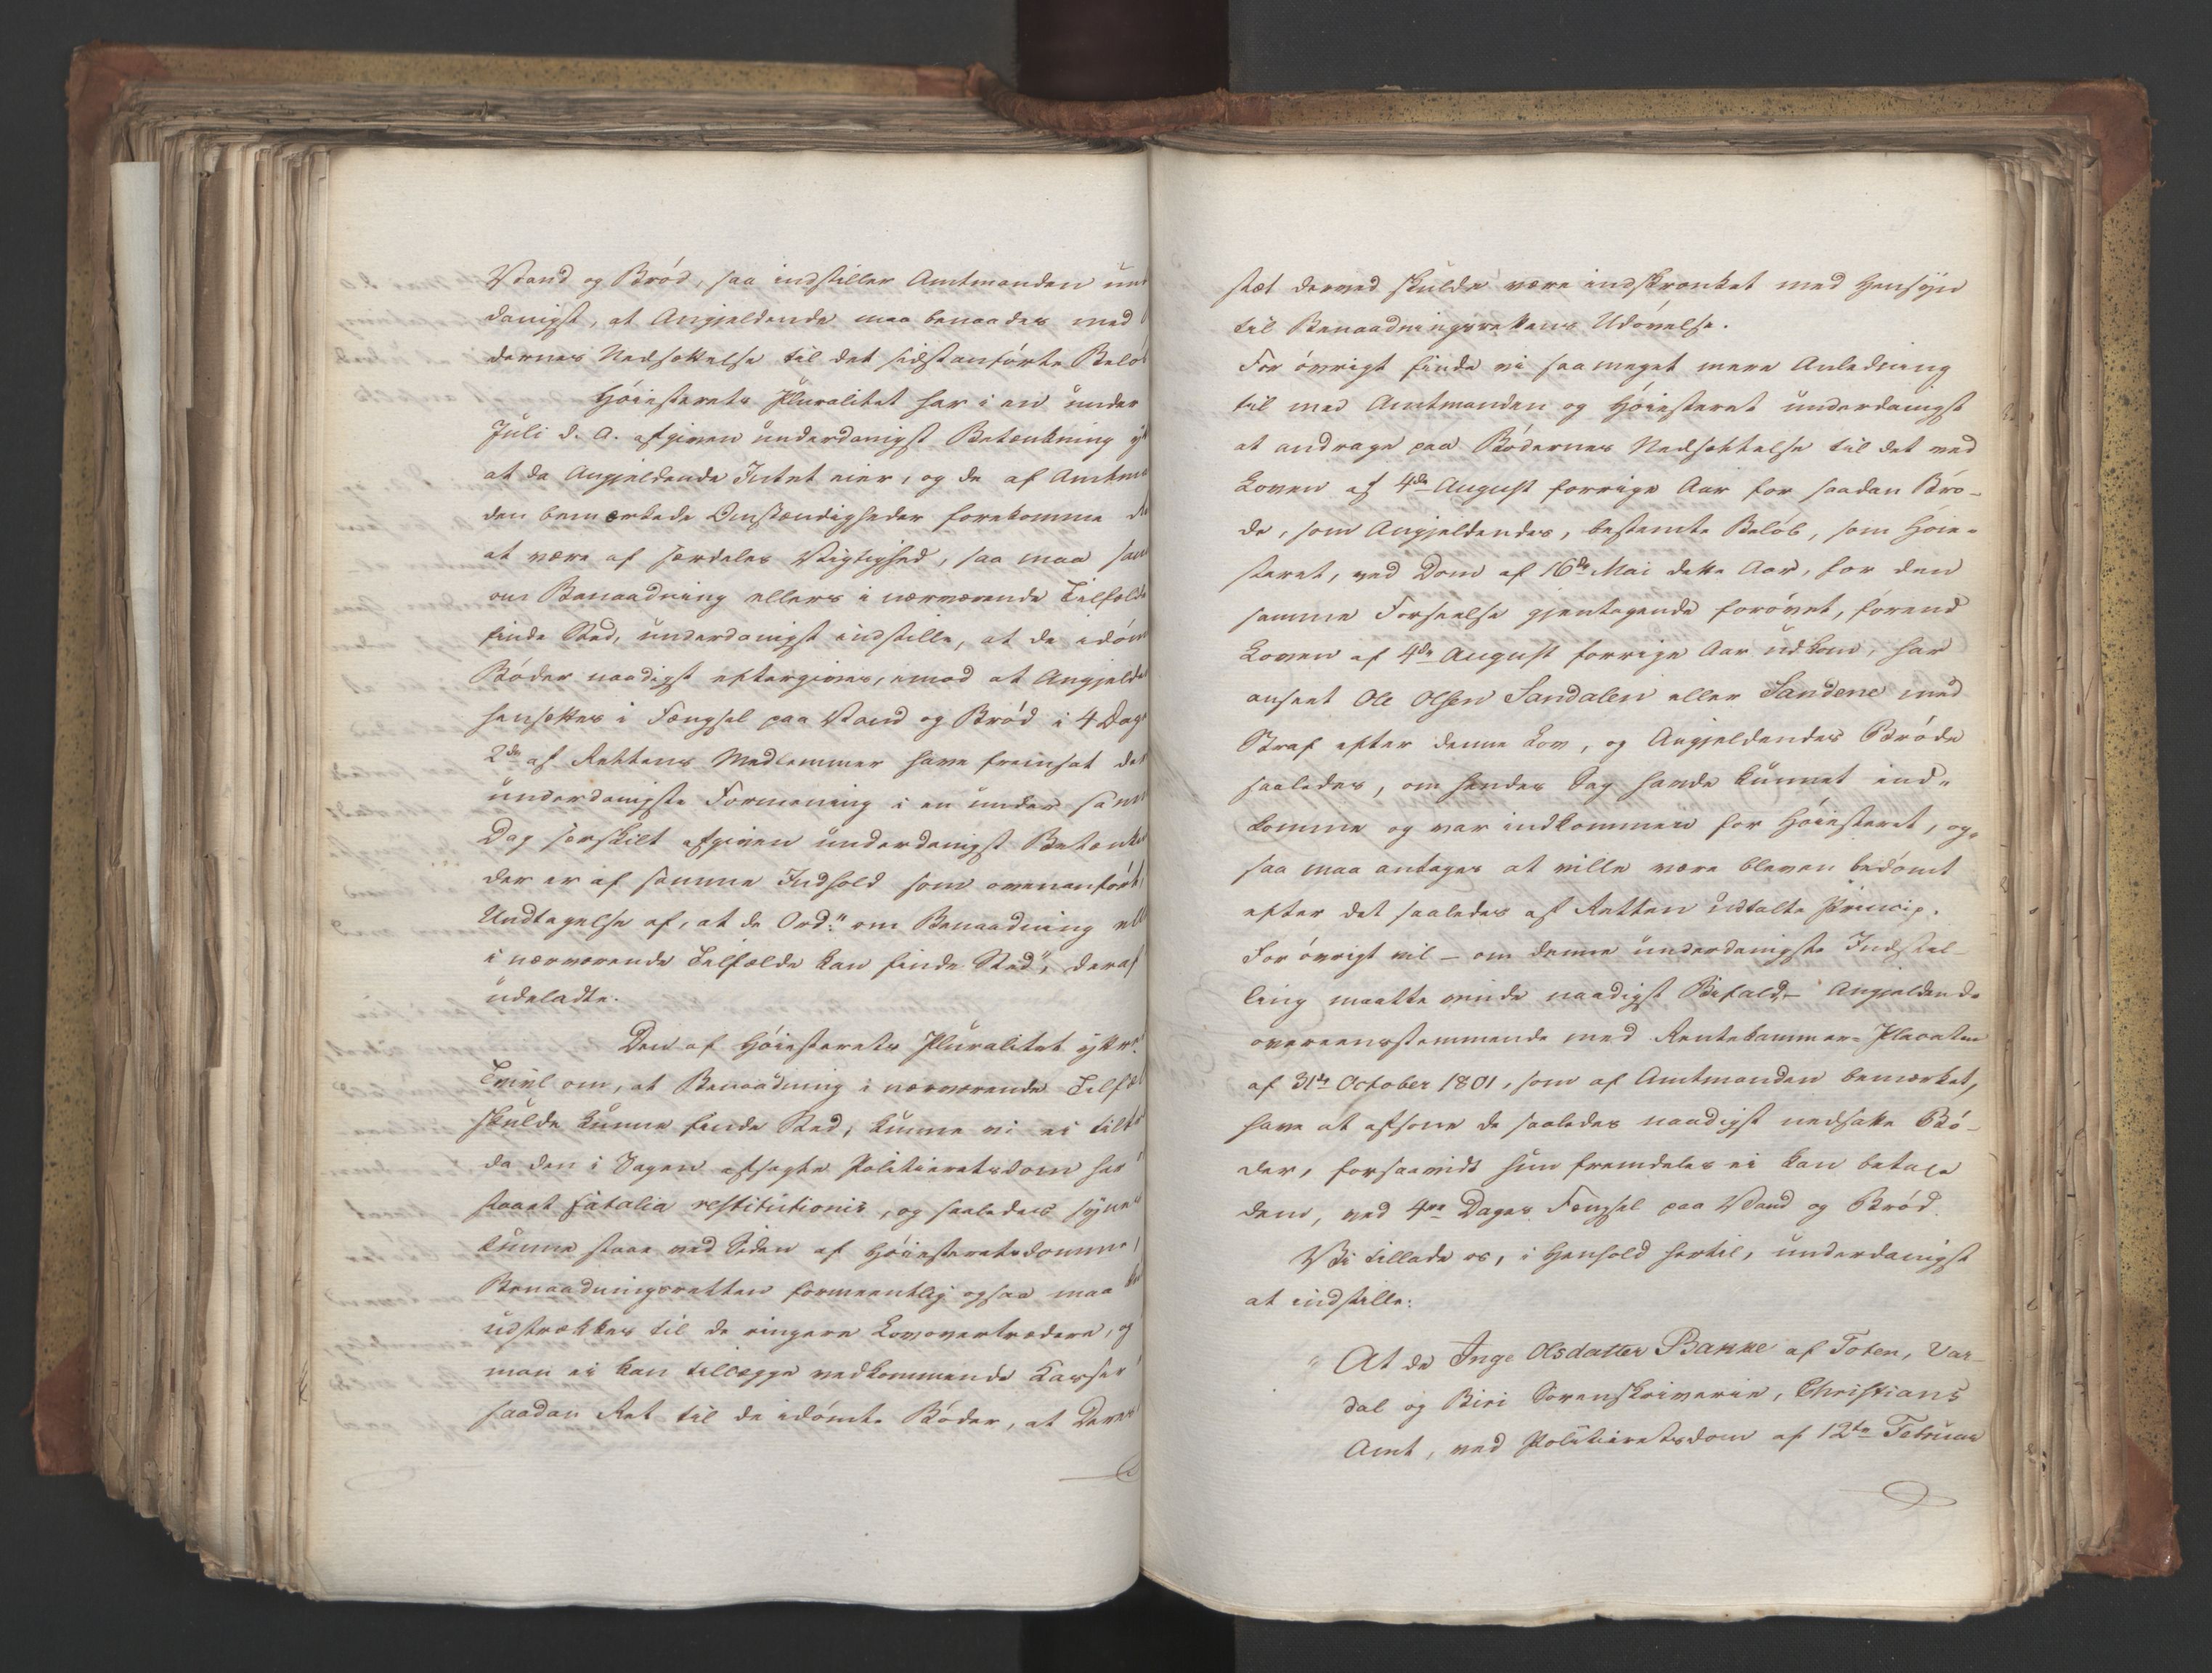 Vand og Brød, saa indstiller Amtmanden un
danigst, at Angjeldende maa benaades med
dernes Nedsættelse til det sidstanførte Belø
Høiesterets Pluralitet har i en under
Juli d. A. afgiven underdanigst Betænkning y
at da Angjeldende Intet eier, og de af Amtma
den bemærkede Omstændigheder forekomme
at være af særdeles Vigtighed, saa maa
om Benaadning ellers i nærværende Tilfælde
finde Sted, underdanigst indstille, at de idøm
Bøder naadigst eftergives, imod at Angjelde
hensættes i Fængsel paa Vand og Brød i 4 Dage
2de af Rettens Medlemmer have fremsat de
underdanigste Formening i en under samme
Dag særskilt afgiven underdanigst Betænk
der er af samme Indhold som ovenanført,
Undtagelse af, at de Ord: "om Benaadning ell
i nærværende Tilfælde kan finde Sted", deraf
udeladte.
Den af Høiesterets Pluralitet yttre
Tvivl om, at Benaadning i nærværende Tilfæl
skulde kunne finde Sted, kunne vi ei tilt
da den i Sagen afsagte Politieretsdom har
staaet fatalia restitutionis, og saaledes synes
kunne staae ved Siden af Høiesteretsdomme,
Benaadningsretten formeentlig ogsaa maa
udstrækkes til de ringere Lovovertrædere, og
man ei kan tillægge vedkommende Kasser
saadan Ret til de idømte Bøder, at Deres
stæt derved skulde være indskrænket med Hensyn
til Benaadningsrettens Udøvelse.
For øvrigt finde vi saameget mere Anledning
til med Amtmanden og Høiesteret underdanigst
at andrage paa Bødernes Nedsættelse til det ved
Loven af 4de August forrige Aar for saadan Brø-
de, som Angjeldendes, bestemte Beløb, som Høie-
steret, ved Dom af 16de Mai dette Aar, for den
samme Forseelse gjentagende forøvet, førend
Loven af 4de August forrige Aar udkom, har
anseet Ole Olsen Sandalen eller Sandene med
Straf efter denne Lov, og Angjeldendes Brøde
saaledes, om hendes Sag havde kunnet ind-
komme og var indkommen for Høiesteret, og-
saa maa antages at ville være bleven bedømt
efter det saaledes af Retten udtalte Princip.
For øvrigt vil - om denne underdanigste Indstil-
ling maatte vinde naadigst Bifald - Angjeldende
overeensstemmende med Rentekammer-Placaten
af 31te October 1801, som af Amtmanden bemærket,
have at afsone de saaledes naadigst nedsatte Bø-
der, forsaavidt hun fremdeles ei kan betale
dem, ved 4re Dages Fængsel paa Vand og Brød.
Vi tillade os, i Henhold hertil, underdanigst
at indstille:
"At de Inge Olsdatter Bakke af Toten, Var-
dal og Biri Sorenskriverie, Christians
Amt, ved Politieretsdom af 12te Februar